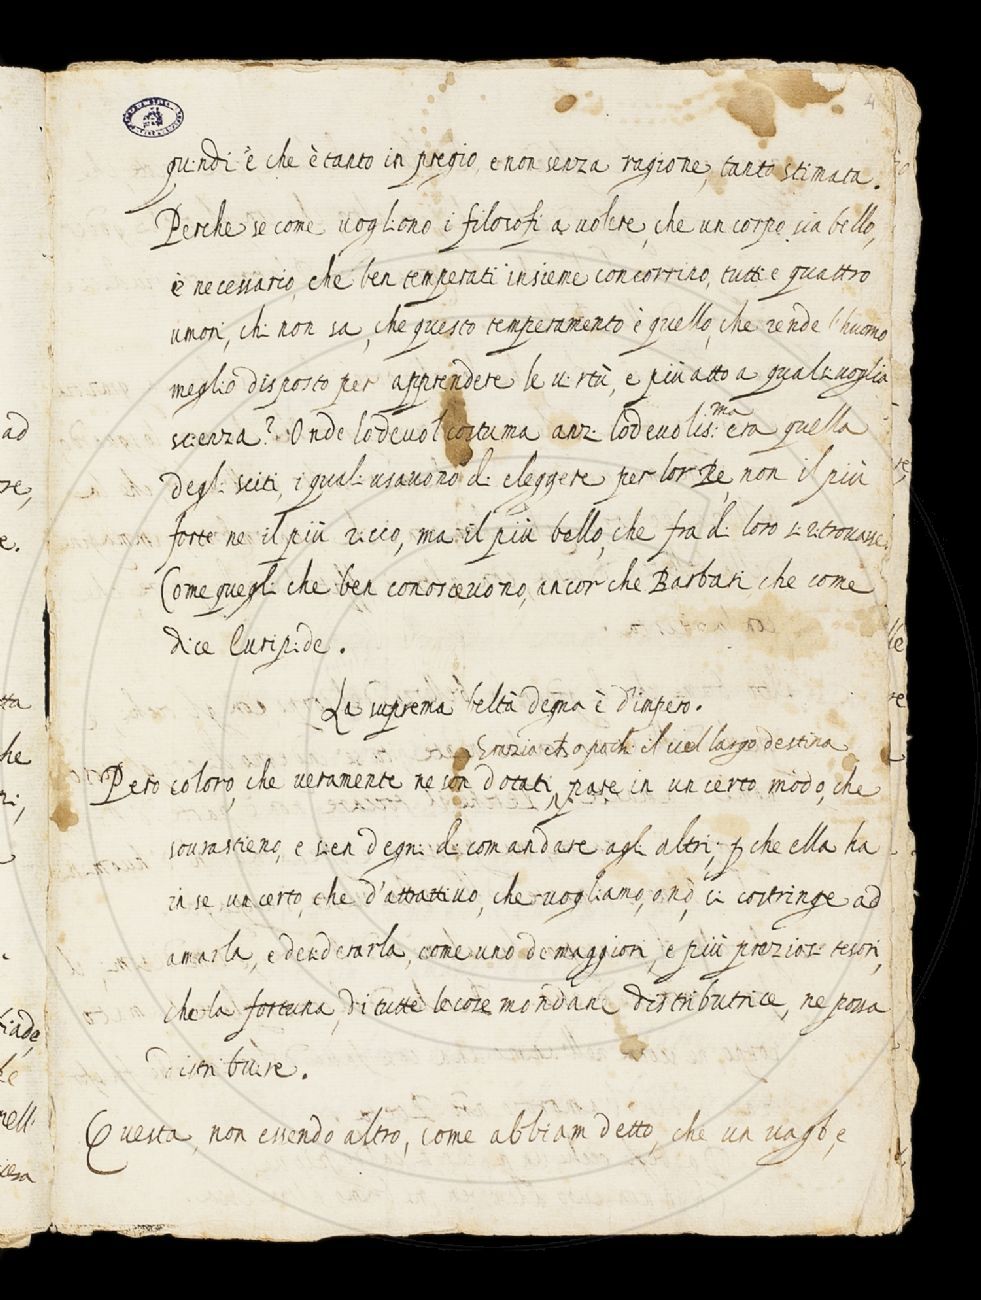 quindi è che è tanto in pregio, e non senza ragione, tanto stimata.
Perche se come uogliono i filosofi a uolere, che un corpo sia bello,
è necessario, che ben temperati insieme concorrino, tutti e quattro
umori, chi non sa, che questo temperamento è quello, che rende l'huomo
meglio disposto per apprendere le uirtù, e più atto a qual si uoglia
scienza? Onde lodeuol costuma anzi lodeuolis:ma era quella
degli sciti, i quali usauono di eleggere per lor Re, non il più
forte ne il più ricco, ma il più bello, che fra di loro si ritrouasse.
Come quegli che ben conosceuono, ancor che Barbari che come
dice Euripide.
La suprema beltà degna è d'impero.
Grazia ch'a pochi il ciel largo destina
Pero coloro, che ueramente ne son dotati, pare in un certo modo, che
sourastieno, e sien degni di comandare agli altri; p che ella ha
in se un certo, che d'attrattiuo, che uogliamo, o nò, ci costringe ad
amarla, e desiderarla, come uno de maggiori, e più preziosi tesori,
che la fortuna, di tutte le cose mondane distributrice, ne possa
distribuire.
Questa, non essendo altro, come abbiam detto, che un uago, e